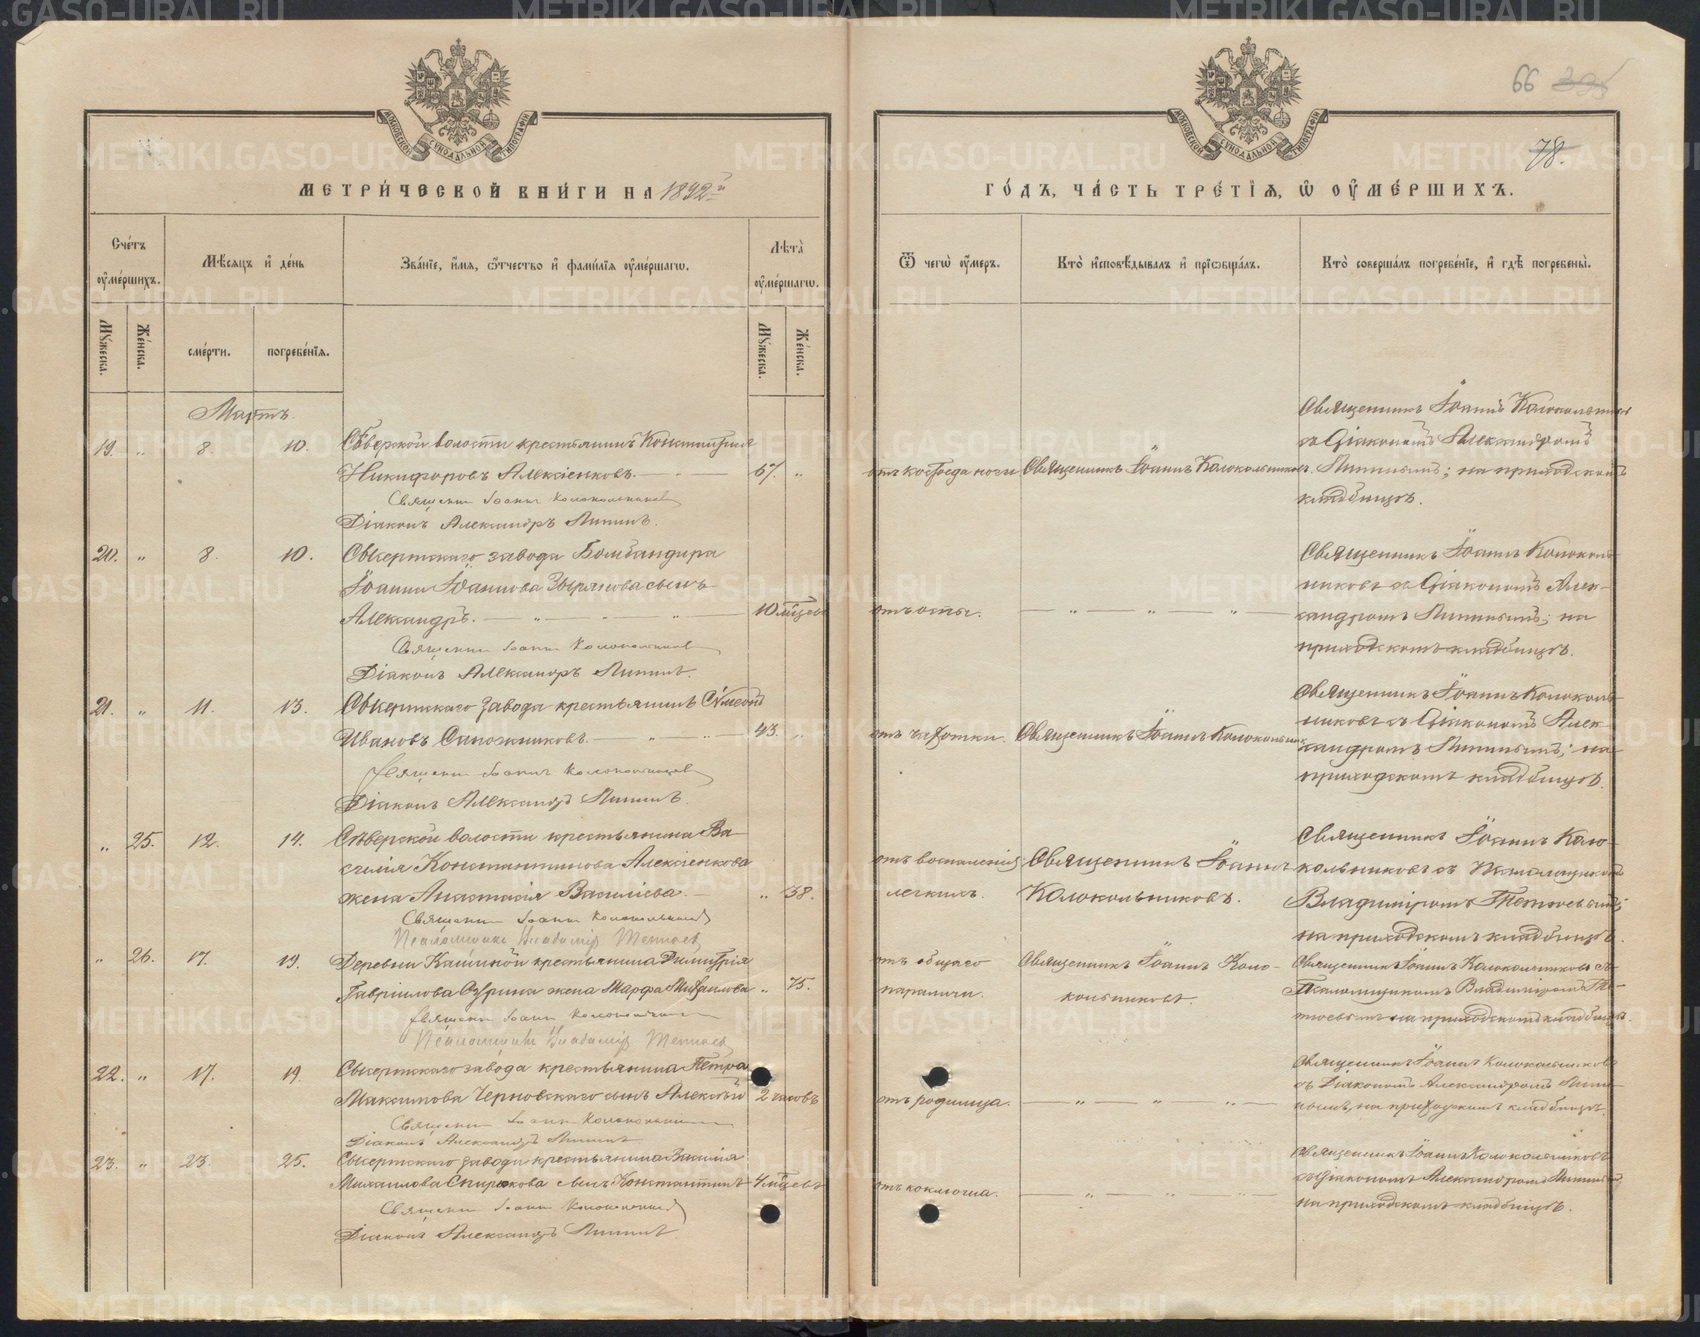 66
78.
МЕТРИ́ЧЕСКОЙ КНИ́ГИ НА 1892й
ГО́ДЪ, ЧА́СТЬ ТРЕ́ТІѦ, Ѡ ОУ҆МЕ́РШИХЪ.
Сче́тъ оу҆ме́ршихъ.
Мѣ́сяцъ и҆ де́нь
Зва́ніе, и҆́мѧ, ѻ҆́тчество и҆ фами́лїѧ оу҆ме́ршагѡ.
Лѣ́та оу҆ме́ршагѡ.
Мꙋ́жеска.
Же́нска.
сме́рти.
погребе́нїѧ.
Мꙋ́жеска.
Же́нска.
Ѿ чегѡ̀ оу҆́меръ.
Кто̀ и҆сповѣ́дывалъ и҆ прїѡбща́лъ.
Кто̀ соверша́лъ погребе́нїе, и҆ гдѣ̀ погребены̀.
Мартъ.
19. „ 8. 10. Сѣверской волости крестьянинъ Константинъ
Никифоровъ Алексіенковъ. 67. „
Священн Іоаннъ Колокольников
Діаконъ Александръ
отъ костоеда ноги Священникъ Іоаннъ Колокольниковъ
Священникъ Іоаннъ Колокольников
съ Діакономъ Александромъ
на приходскомъ
кладбищѣ.
20. „ 8. 10. Сысертскаго завода Бомбандира
Іоанна Іоаннова Зырянова сынъ
Александръ. 10 мѣцевъ
Священн Іоаннъ Колокольников
Діаконъ Александръ
отъ оспы. „ „ „
Священникъ Іоаннъ Колоколь-
никовъ съ Діакономъ Алек-
сандромъ на
приходскомъ кладбищѣ.
21. „ 11. 13. Сысертскаго завода крестьянинъ Сѵмеонъ
Ивановъ Сапожниковъ. 43. „
Священн Іоаннъ Колокольников
Діаконъ Александръ
отъ чахотки. Священникъ Іоаннъ Колокольник
Священникъ Іоаннъ Колоколь-
никовъ съ Діакономъ Алек-
сандромъ на
приходскомъ кладбищѣ.
„ 25. 12. 14. Сѣверской волости крестьянина Ва-
силія Константинова Алексіенкова
жена Анастасія Василіева. „ 38.
Священн Іоаннъ Колокольников
Псаломщикъ Владиміръ
отъ воспаленія
легкихъ.
Священникъ Іоаннъ
Колокольниковъ.
Священникъ Іоаннъ Коло-
кольниковъ съ Псаломщикомъ
Владиміромъ
на приходскомъ кладбищѣ.
„ 26. 17. 19. Деревни Кашиной крестьянина Димитрія
Гавріилова жена Марфа Михаилова „ 75.
Священн Іоаннъ Колокольников
Псаломщикъ Владиміръ
отъ общаго
паралича.
Священникъ Іоаннъ Коло-
кольниковъ.
Священникъ Іоаннъ Колокольниковъ съ
Псаломщикомъ Владиміромъ
на приходскомъ кладбищѣ.
22. „ 17. 19. Сысертскаго завода крестьянина Петра
Максимова Черновскаго сынъ Алексѣй 2 часовъ
Священн Іоаннъ Колокольников
Діаконъ Александръ
отъ родимца. „ „ „
Священникъ Іоаннъ Колокольниковъ
съ Діакономъ Александромъ
на приходскомъ кладбищѣ.
23. „ 23. 25. Сысертскаго завода крестьянина Василія
Михаилова Спирякова сынъ Константинъ 4 мѣцевъ
Священн Іоаннъ Колокольников
Діаконъ Александръ
отъ коклюша. „ „
Священникъ Іоаннъ Колокольниковъ
съ Діакономъ Александромъ
на приходскомъ кладбищѣ.
METRIKI.GASO-URAL.RU